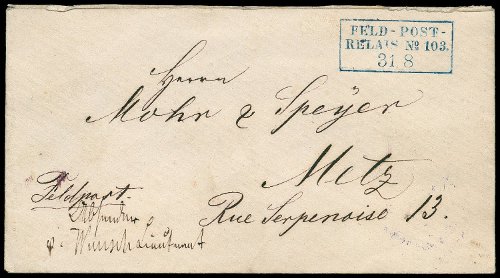 FELD-POST-
RELAIS Nº 103.
31 8
Herrn
Mohr & Speÿer
Metz
Rue Serpenoise 13.
Feldpost.
Absender
Wunsch Lieutenant